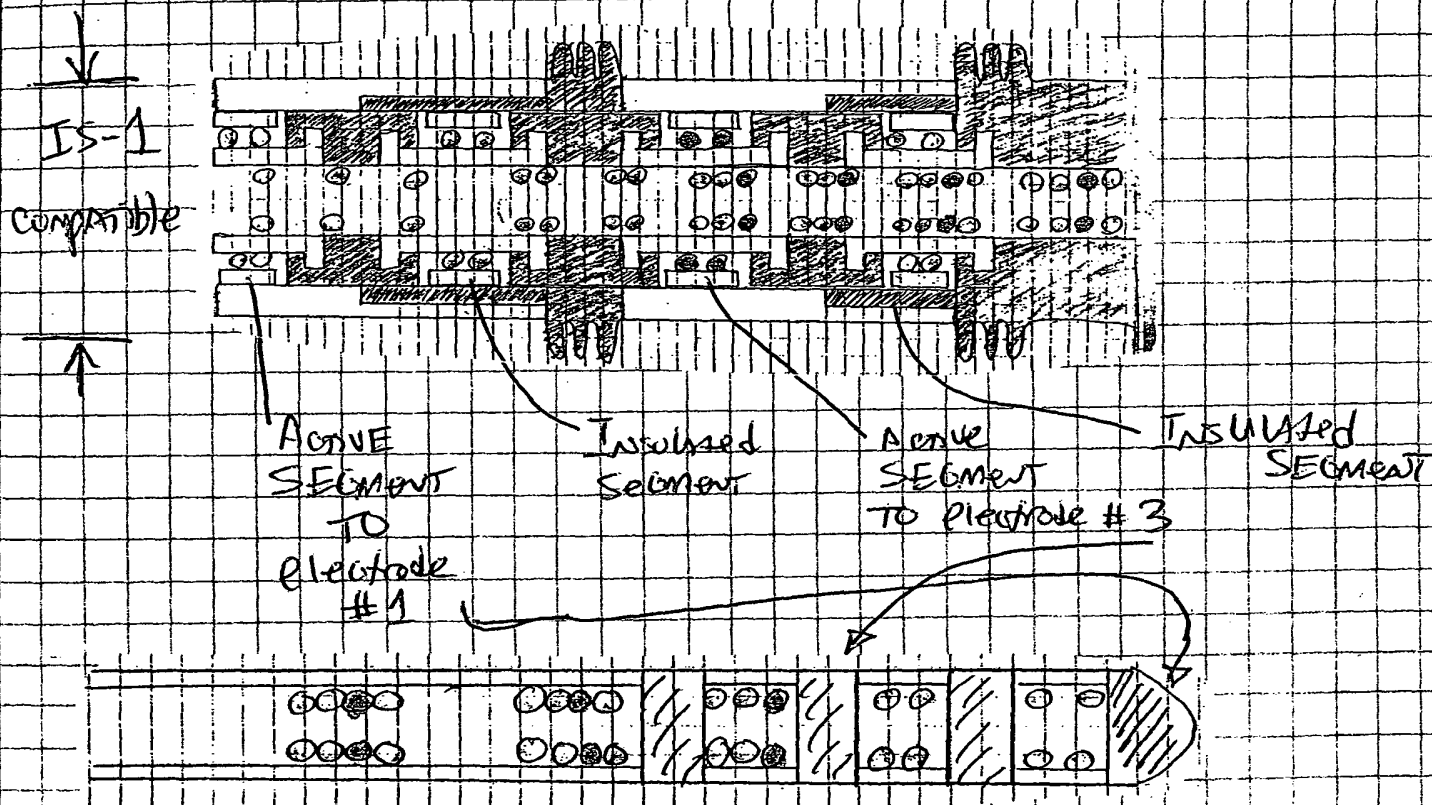 IS-1
COMPATIBLE
ACTIVE
SEGMENT
TO
electrode
#1
INSULATED
SEGMENT
ACTIVE
SEGMENT
TO electrode #3
INSULATED
SEGMENT